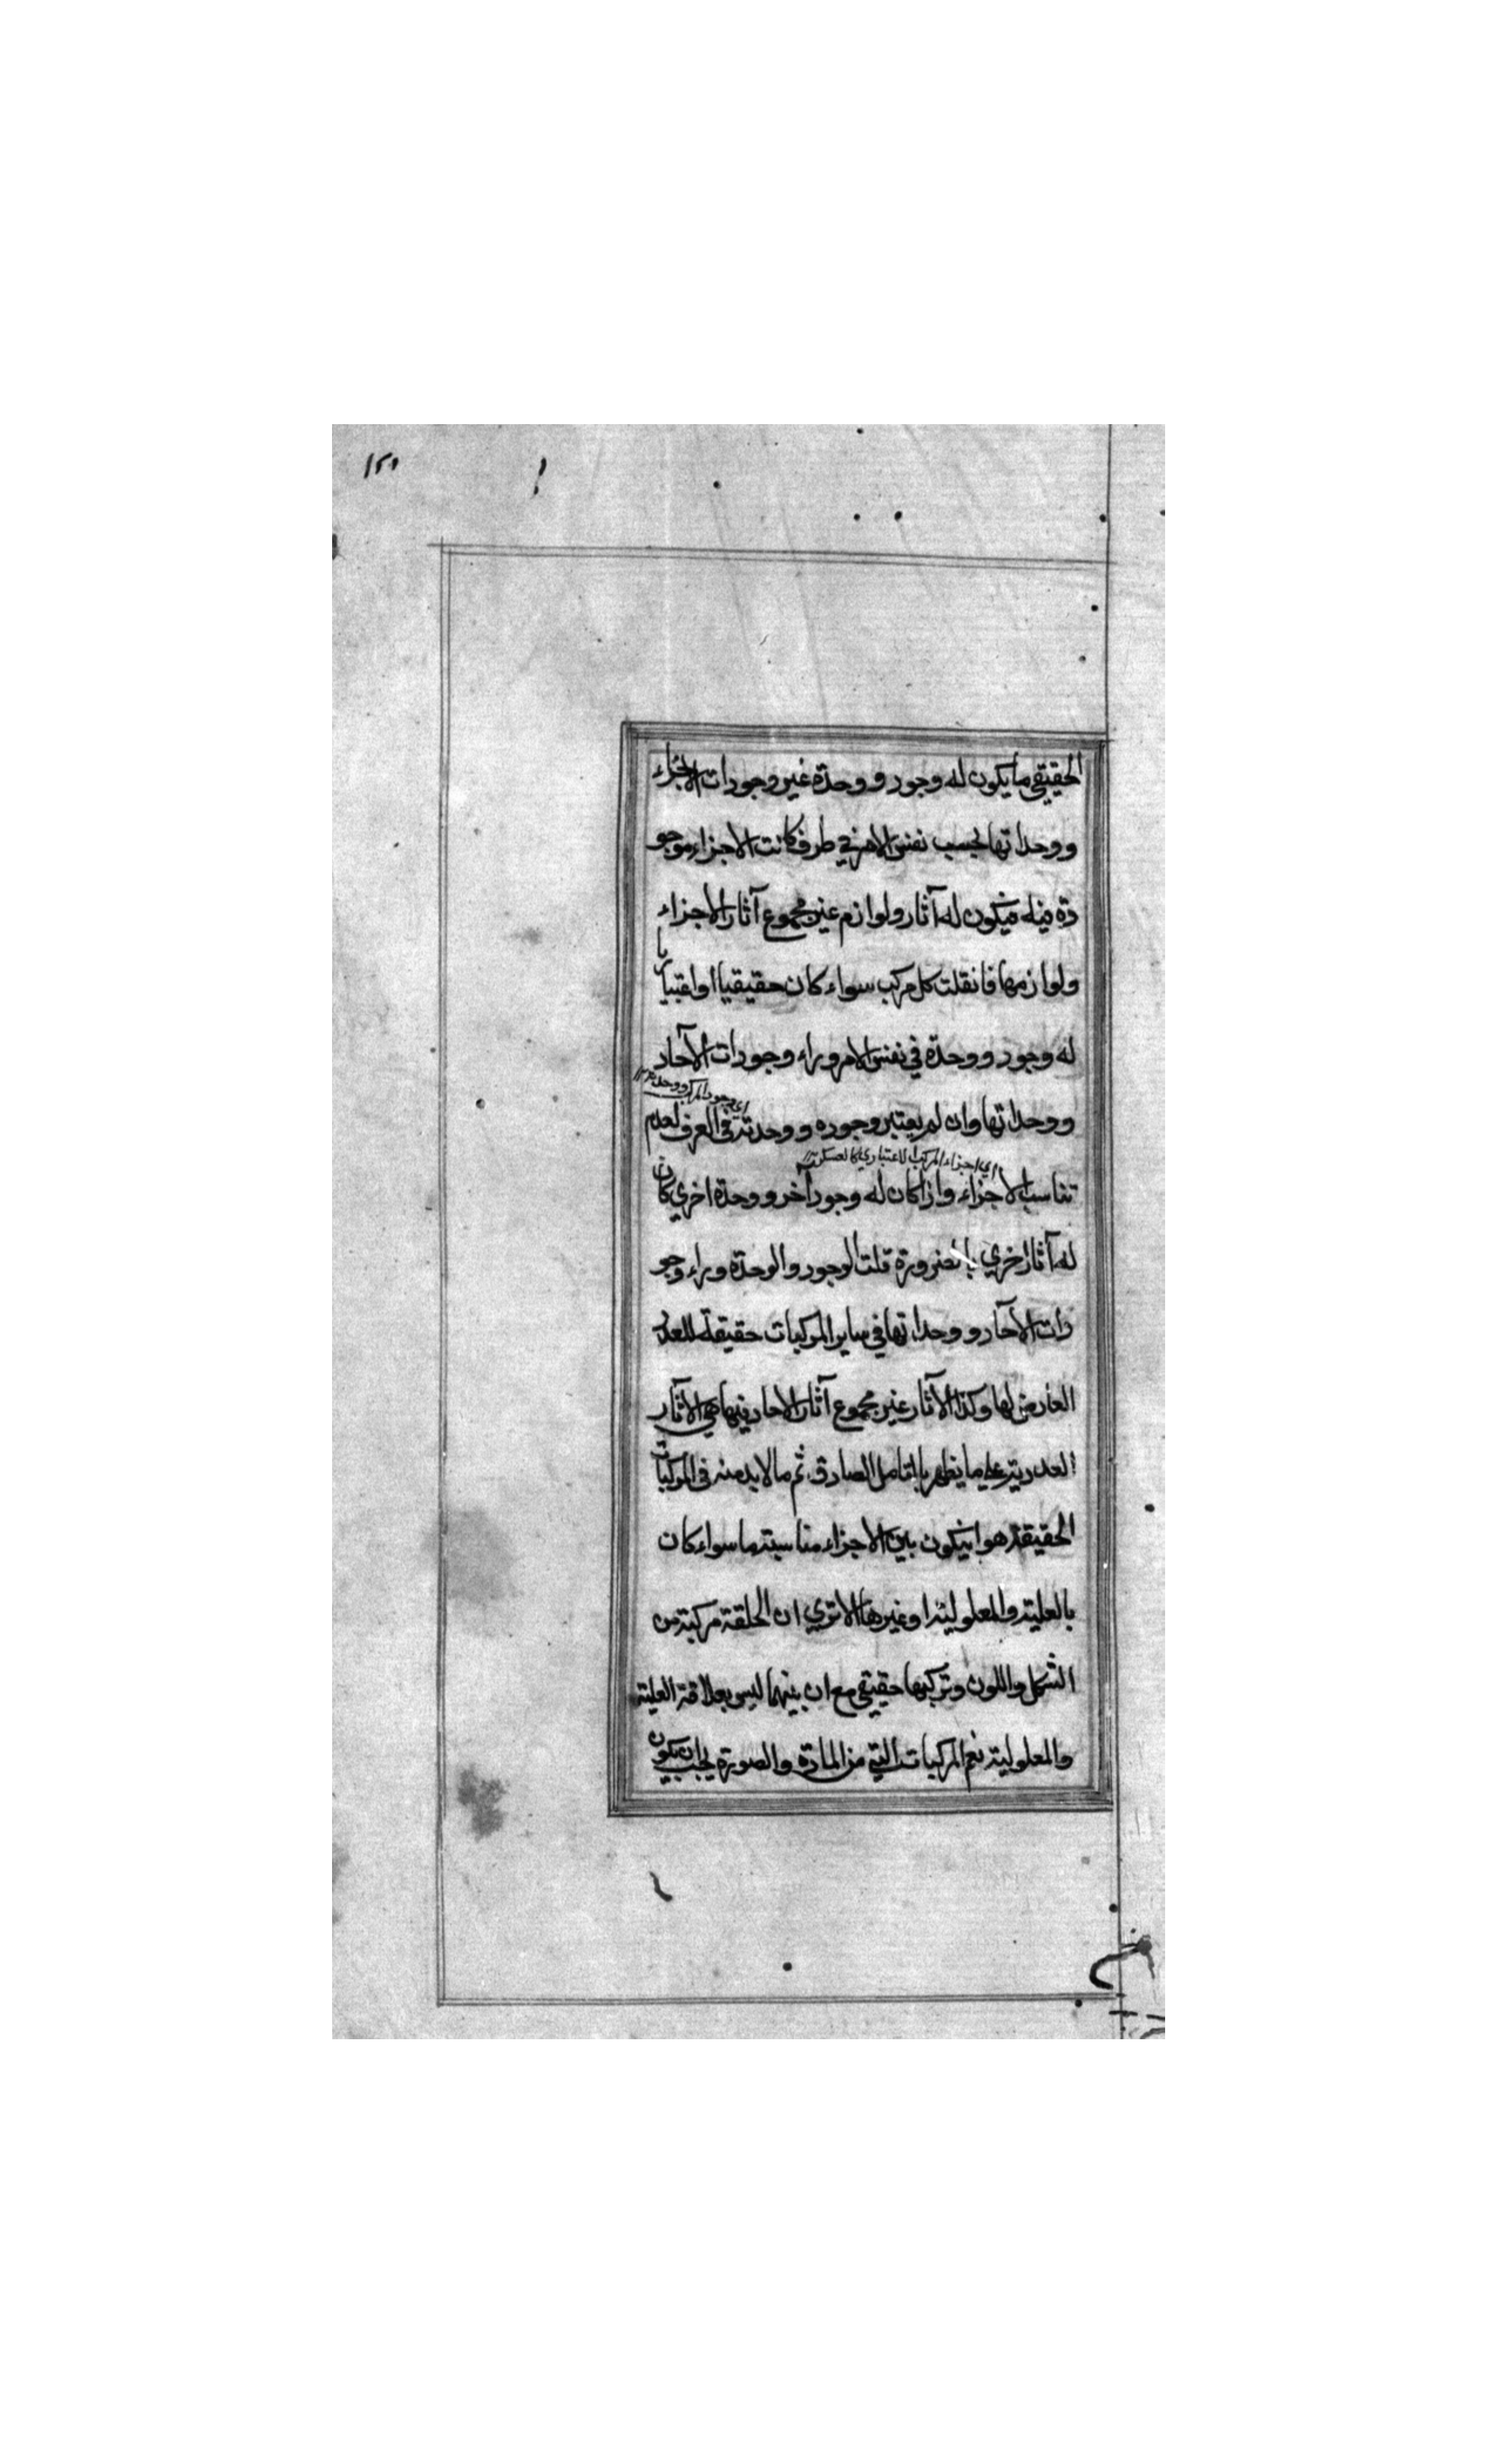 ١٢١
الحقيقي ما يكون له وجود و وحدة غير وجودات الاجزاء
و وحداتها بحسب نفس الامر في ظرف كانت الاجزاء موجو
دة فيه فيكون له آثار ولوازم غير مجموع آثار الاجزاء
ولوازمها فانقلت كل مركب سواء كان حقيقيا او اعتباريا
له وجود و وحدة في نفس الامر وراء وجودات الآحاد
اي وجود المركب و وحدته ١٢
و وحداتها وان لم يعتبر وجوده و وحدته في العرف لعدم
اي اجزاء المركب الاعتباري كالعسكر ١٢
تناسب الاجزاء واذا كان له وجود آخر و وحدة اخري كان
له آثار اخري بالضرورة قلت الوجود والوحدة وراء وجو
دات الآحاد و وحداتها في ساير المركبات حقيقة للعدد
العارض لها وكذا الآثار غير مجموع آثار الاحاد فيها هي الآثار
العددية علي ما يظهر بالتامل الصادق ثم ما لا بد منه في المركبات
الحقيقة هو ان يكون بين الاجزاء مناسبة ما سواء كان
بالعلية والمعلولية او غيرها الا تري ان الخلقة مركبة من
الشكل واللون وتركبها حقيقي مع ان بينهما ليس بعلاقة العلية
والمعلولية نعم المركبات التي من المادة والصورة يجب ان يكون